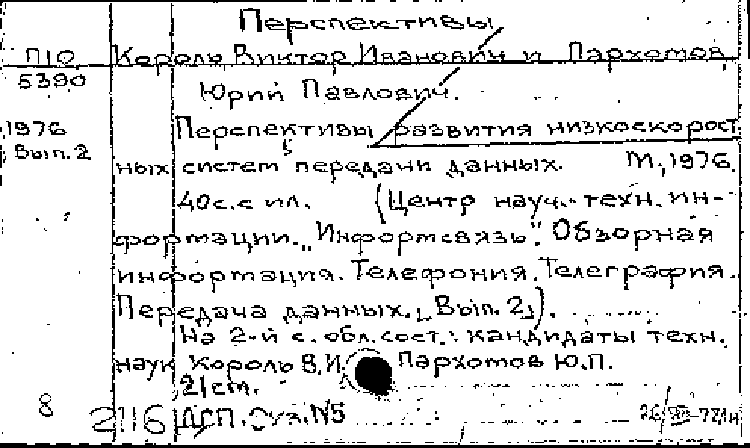 Перспективы
П10 Король Виктор Иванович и Пархотов
5390 Юрий Павлович.
1976 Перспективы развития низкоскорост
Вып.2 ных систем передачи данных. М, 1976.
40с.с ил. (Центр науч.-техн. ин-
формации. "Информсвязь". Обзорная
информация. Телефония. Телеграфия.
Передача данных. Вып. 2).
На 2-й с. обл. сост.: кандидаты техн.
наук Король В.И. Пархотов Ю.П.
21 cm.
8 2116 ДСП. Суз. №5